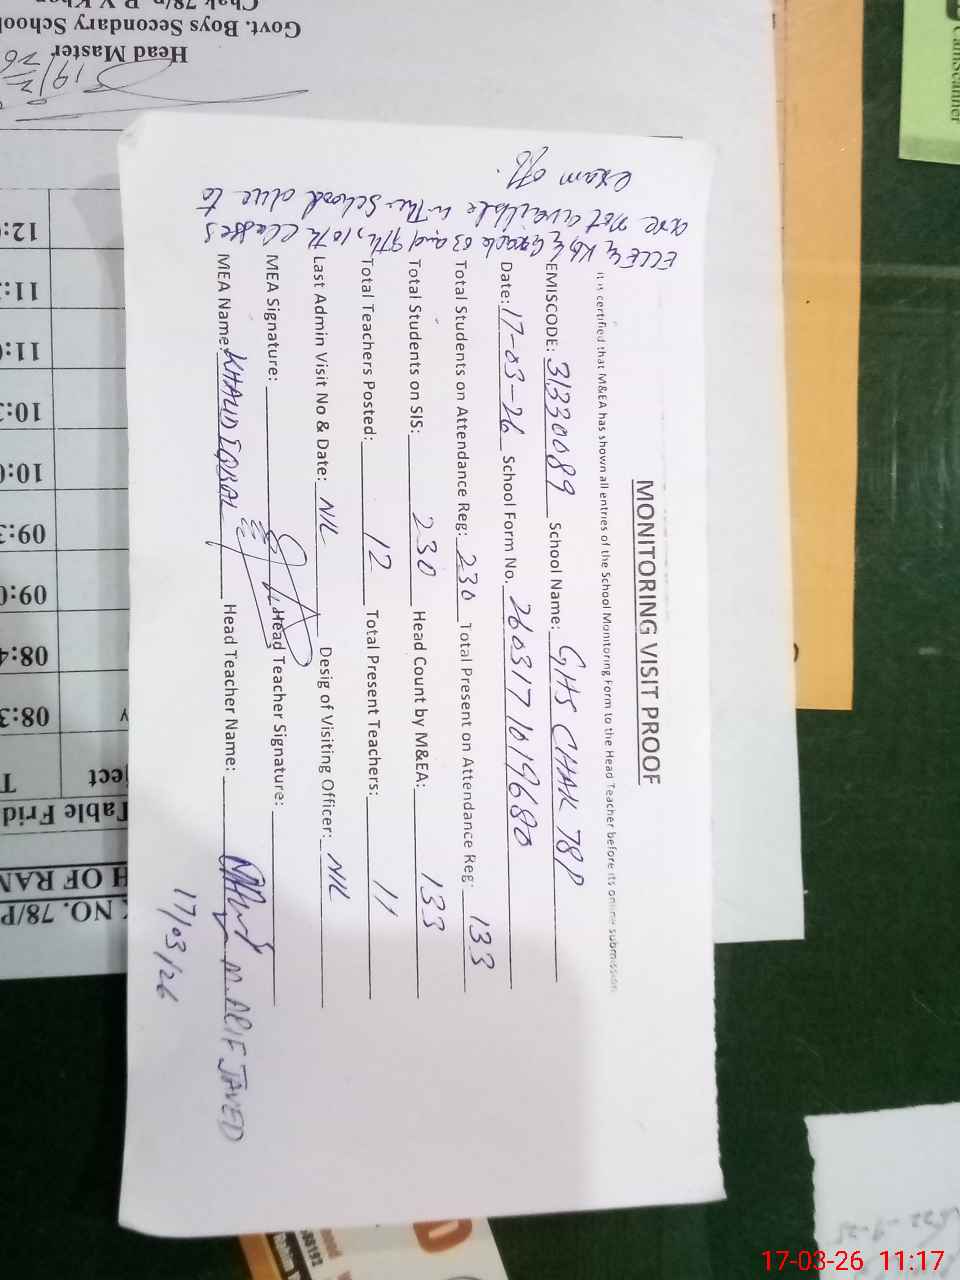 MONITORING VISIT PROOF
It is certified that M&EA has shown all entries of the School Monitoring Form to the Head Teacher before its online submission
EMISCODE: 31330089 School Name: GHS CHAK 78P
Date: 17-03-26 School Form No. 2603171019680
Total Students on Attendance Reg: 230 Total Present on Attendance Reg: 133
Total Students on SIS: 230 Head Count by M&EA: 133
Total Teachers Posted: 12 Total Present Teachers: 11
Last Admin Visit No & Date: NIL Desig of Visiting Officer: NIL
MEA Signature: Head Teacher Signature:
MEA Name: KHALID IQBAL Head Teacher Name: M. ARIF JAVED
17/03/26
Grade 03 and 9th, 10th classes
are not available in the school due to
exam off.
Head Master
Govt. Boys Secondary School
Chak 78/p, R.Y Khan
19/
08:3
08:4
09:0
09:3
10:0
10:3
11:0
11:
12:
Table Frid
NO. 78/P
CamScanner
17-03-26 11:17